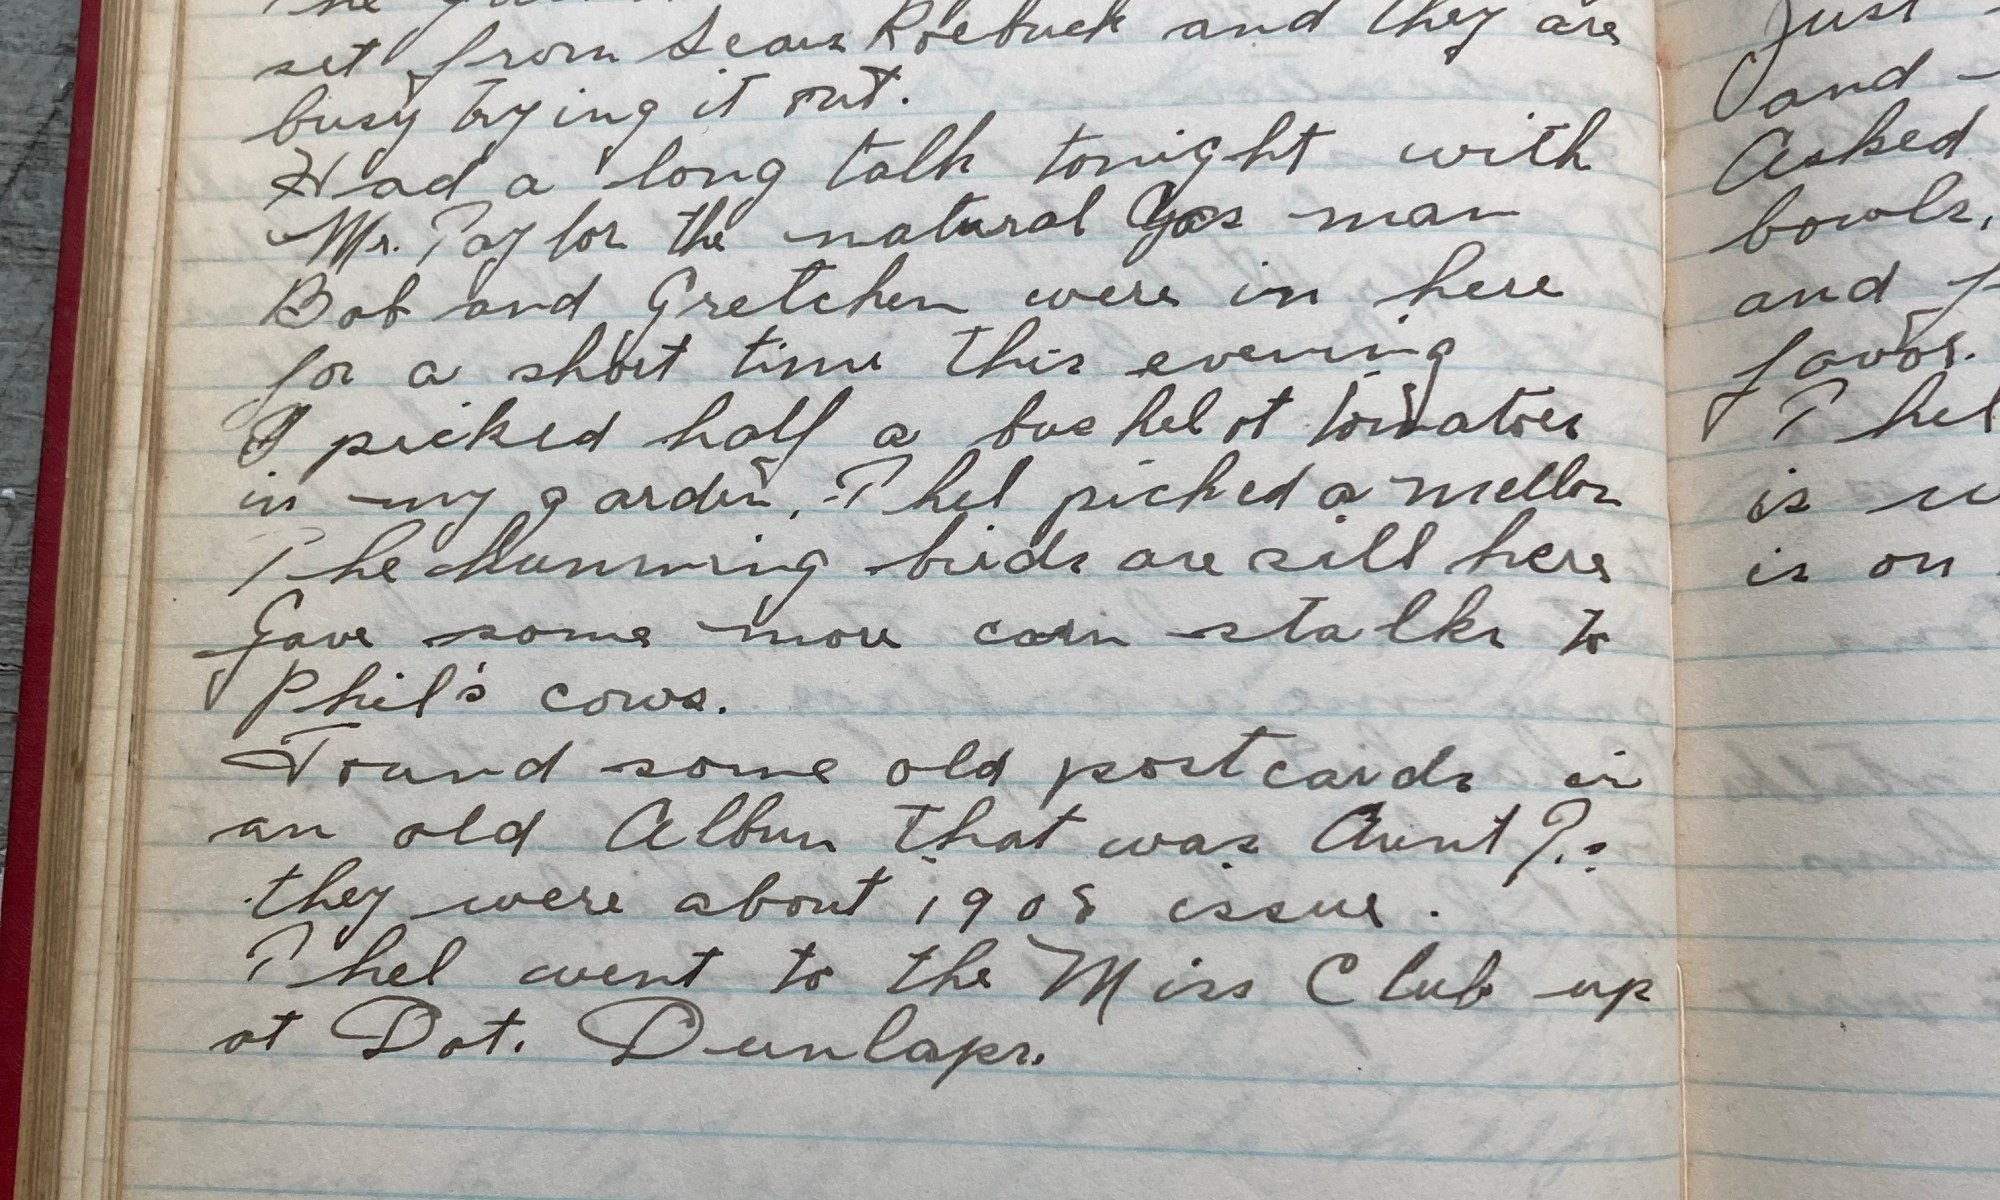 set from Sears Roebuck and they are
busy trying it out.
Had a long talk tonight with
Mr. Taylor the natural Gas man
Bob and Gretchen were in here
for a short time this evening
I picked half a bushel of tomatoes
in my garden. Thel picked a mellon
The Humming birds are sill here
Gave some more corn stalks to
Phil's cows.
Found some old postcards in
an old Album that was Aunt T.s
they were about 1908 issue.
Thel went to the Miss Club up
at Dot. Dunlaps.
Just
and
Asked
bowls,
and
favor.
Thel
is
is on